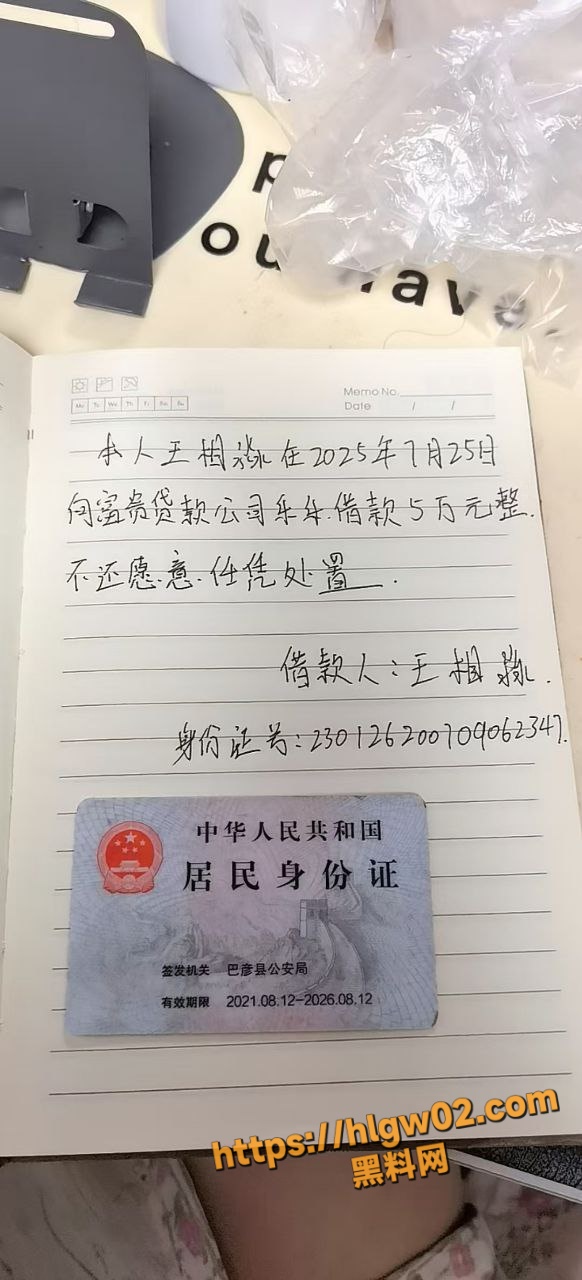 Memo No.
Mo Tu We Th Fr Sa Su
Date / /
本人[已隐去]在2025年7月25日
向富贵贷款公司乐乐.借款5万元整.
不还愿意.任凭处置.
借款人:[已隐去].
身份证号:[已隐去]
中华人民共和国
居民身份证
签发机关 巴彦县公安局
有效期限 2021.08.12-2026.08.12